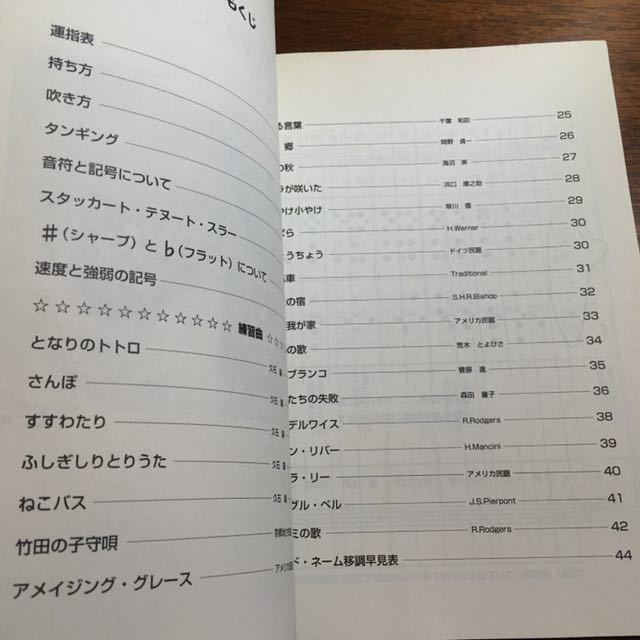 もくじ
運指表
持ち方
吹き方
タンギング
音符と記号について
スタッカート・テヌート・スラー
♯(シャープ)と♭(フラット)について
速度と強弱の記号
☆☆☆☆☆☆☆☆☆☆☆ 練習曲 ☆☆
となりのトトロ 久石
さんぽ 久石
すすわたり 久石
ふしぎしりとりうた 久石
ねこバス 久石
竹田の子守唄 京都地方
アメイジング・グレース アメリカ
る言葉 千葉 和臣 25
郷 岡野 貞一 26
の秋 海沼 実 27
が咲いた 浜口 庫之助 28
やけ小やけ 草川 信 29
ばら H.Werner 30
うちょう ドイツ民謡 30
馬車 Traditional 31
の宿 S.H.R.Bishop 32
我が家 アメリカ民謡 33
の歌 荒木 とよひさ 34
ブランコ 菅原 進 35
たちの失敗 森田 童子 36
デルワイス R.Rodgers 38
ン・リバー H.Mancini 39
ラ・リー アメリカ民謡 40
グル・ベル J.S.Pierpont 41
ミの歌 R.Rodgers 42
ド・ネーム移調早見表 44